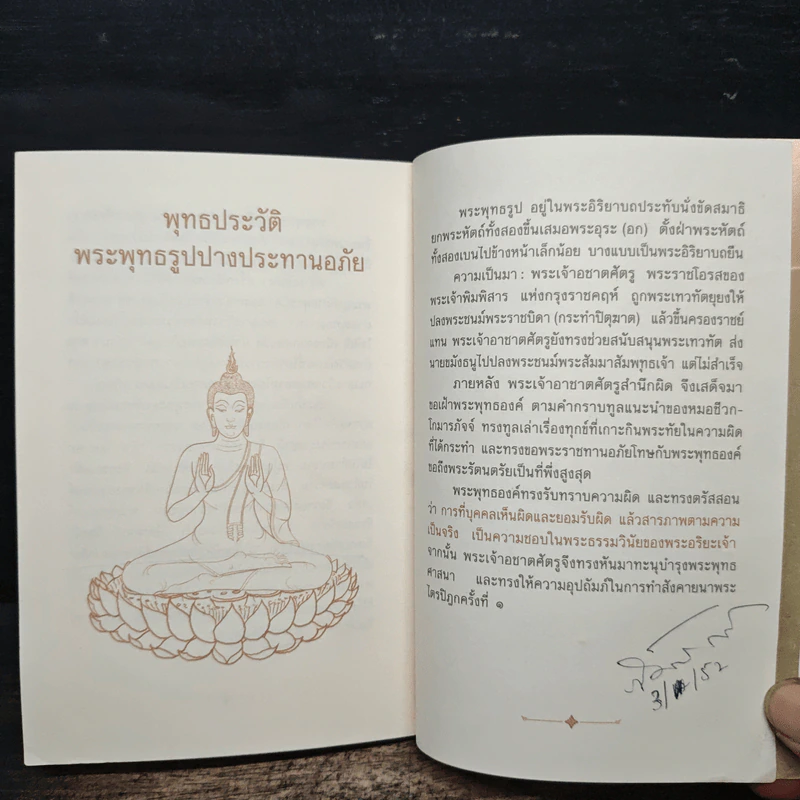 พุทธประวัติ
พระพุทธรูปปางประทานอภัย
พระพุทธรูป อยู่ในพระอิริยาบถประทับนั่งขัดสมาธิ
ยกพระหัตถ์ทั้งสองขึ้นเสมอพระอุระ (อก) ตั้งฝ่าพระหัตถ์
ทั้งสองเบนไปข้างหน้าเล็กน้อย บางแบบเป็นพระอิริยาบถยืน
ความเป็นมา : พระเจ้าอชาตศัตรู พระราชโอรสของ
พระเจ้าพิมพิสาร แห่งกรุงราชคฤห์ ถูกพระเทวทัตยุยงให้
ปลงพระชนม์พระราชบิดา (กระทำปิตุฆาต) แล้วขึ้นครองราชย์
แทน พระเจ้าอาชาตศัตรูยังทรงช่วยสนับสนุนพระเทวทัต ส่ง
นายขมังธนูไปปลงพระชนม์พระสัมมาสัมพุทธเจ้า แต่ไม่สำเร็จ
ภายหลัง พระเจ้าอาชาตศัตรูสำนึกผิด จึงเสด็จมา
ขอเฝ้าพระพุทธองค์ ตามคำกราบทูลแนะนำของหมอชีวก-
โกมารภัจจ์ ทรงทูลเล่าเรื่องทุกข์ที่เกาะกินพระทัยในความผิด
ที่ได้กระทำ และทรงขอพระราชทานอภัยโทษกับพระพุทธองค์
ขอถึงพระรัตนตรัยเป็นที่พึ่งสูงสุด
พระพุทธองค์ทรงรับทราบความผิด และทรงตรัสสอน
ว่า การที่บุคคลเห็นผิดและยอมรับผิด แล้วสารภาพตามความ
เป็นจริง เป็นความชอบในพระธรรมวินัยของพระอริยะเจ้า
จากนั้น พระเจ้าอาชาตศัตรูจึงทรงหันมาทะนุบำรุงพระพุทธ
ศาสนา และทรงให้ความอุปถัมภ์ในการทำสังคายนาพระ
ไตรปิฎกครั้งที่ ๑